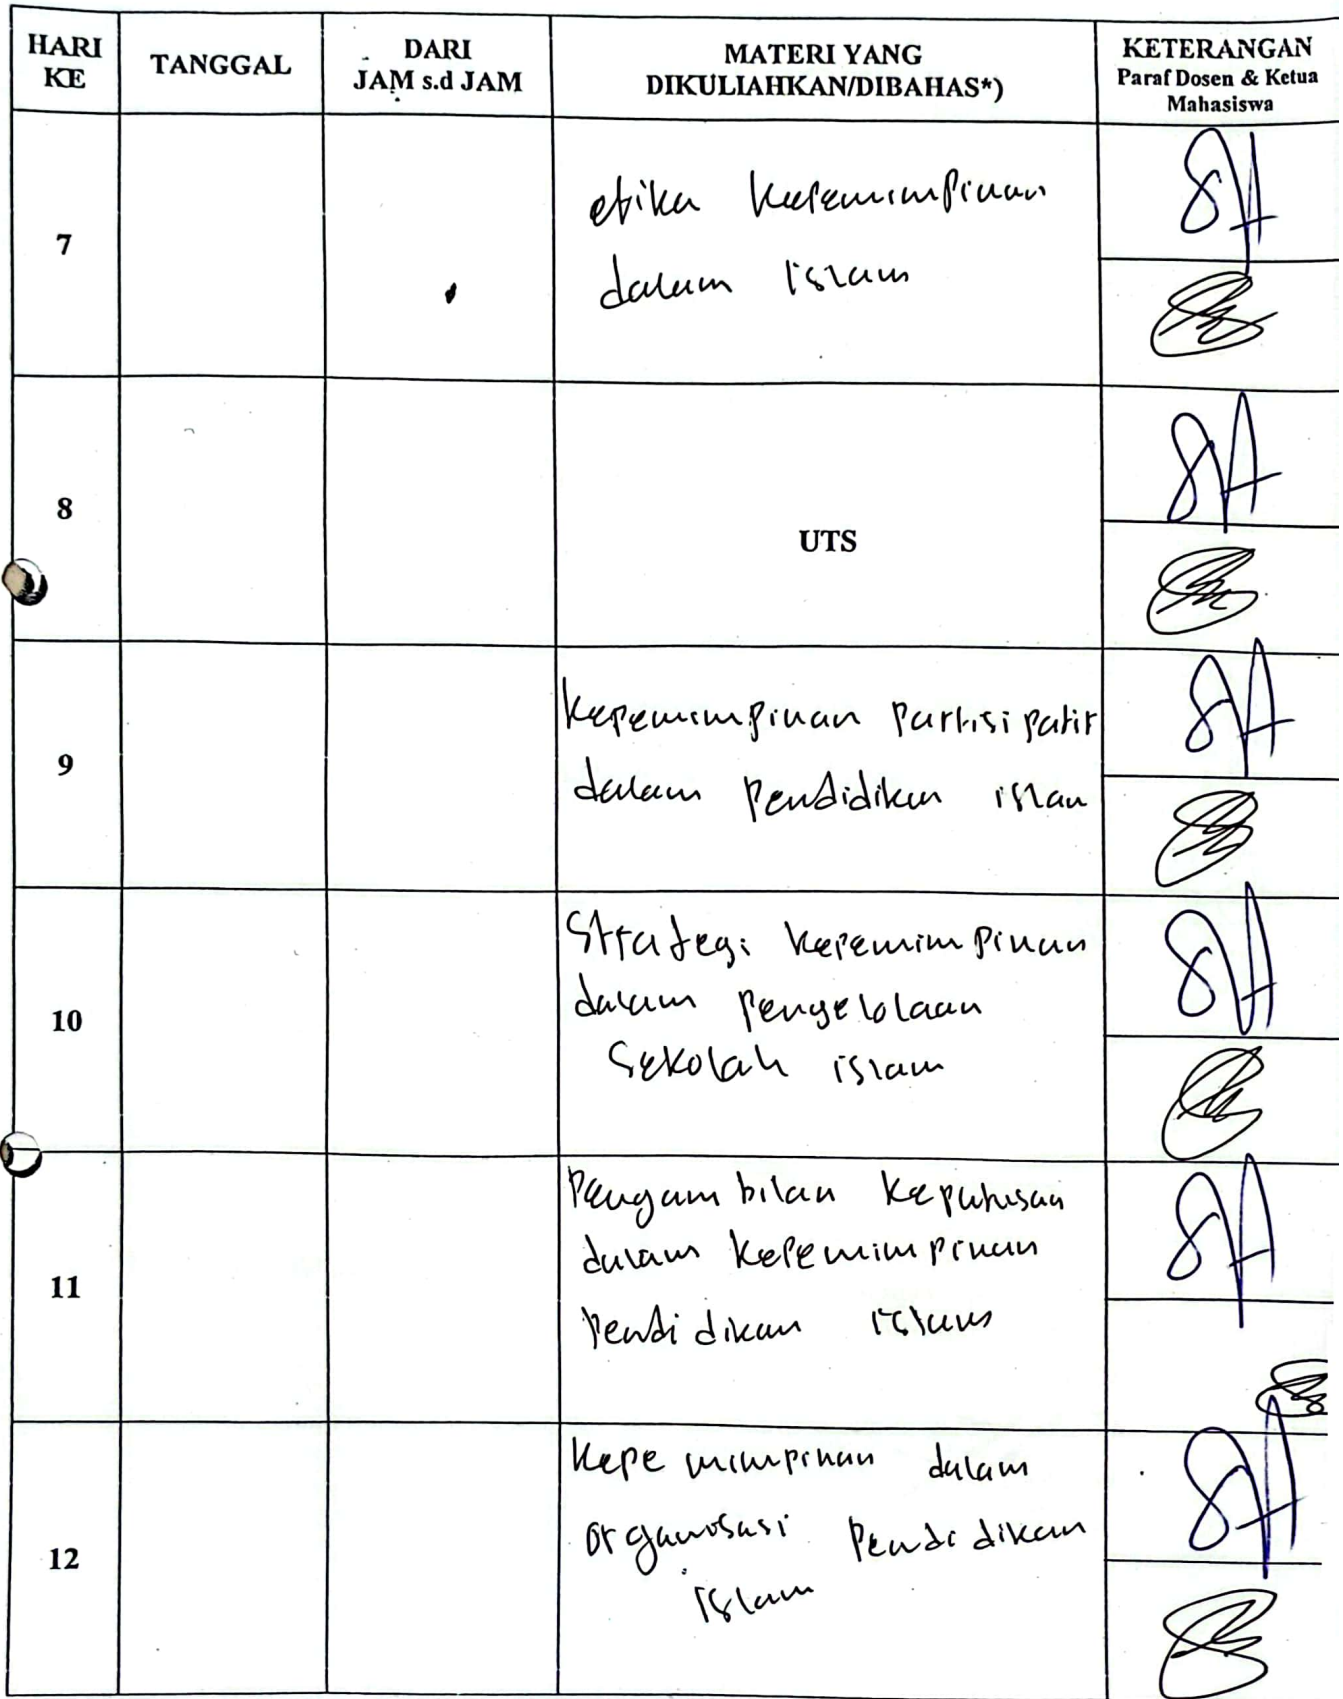 HARI KE
TANGGAL
DARI
JAM s.d JAM
MATERI YANG
DIKULIAHKAN/DIBAHAS*)
KETERANGAN
Paraf Dosen & Ketua
Mahasiswa
7
etika kepemimpinan
dalam islam
8
UTS
9
kepemimpinan partisipatif
dalam pendidikan islam
10
Strategi kepemimpinan
dalam pengelolaan
Sekolah islam
11
Pengambilan keputusan
dalam kepemimpinan
pendidikan islam
12
Kepemimpinan dalam
organisasi pendidikan
islam